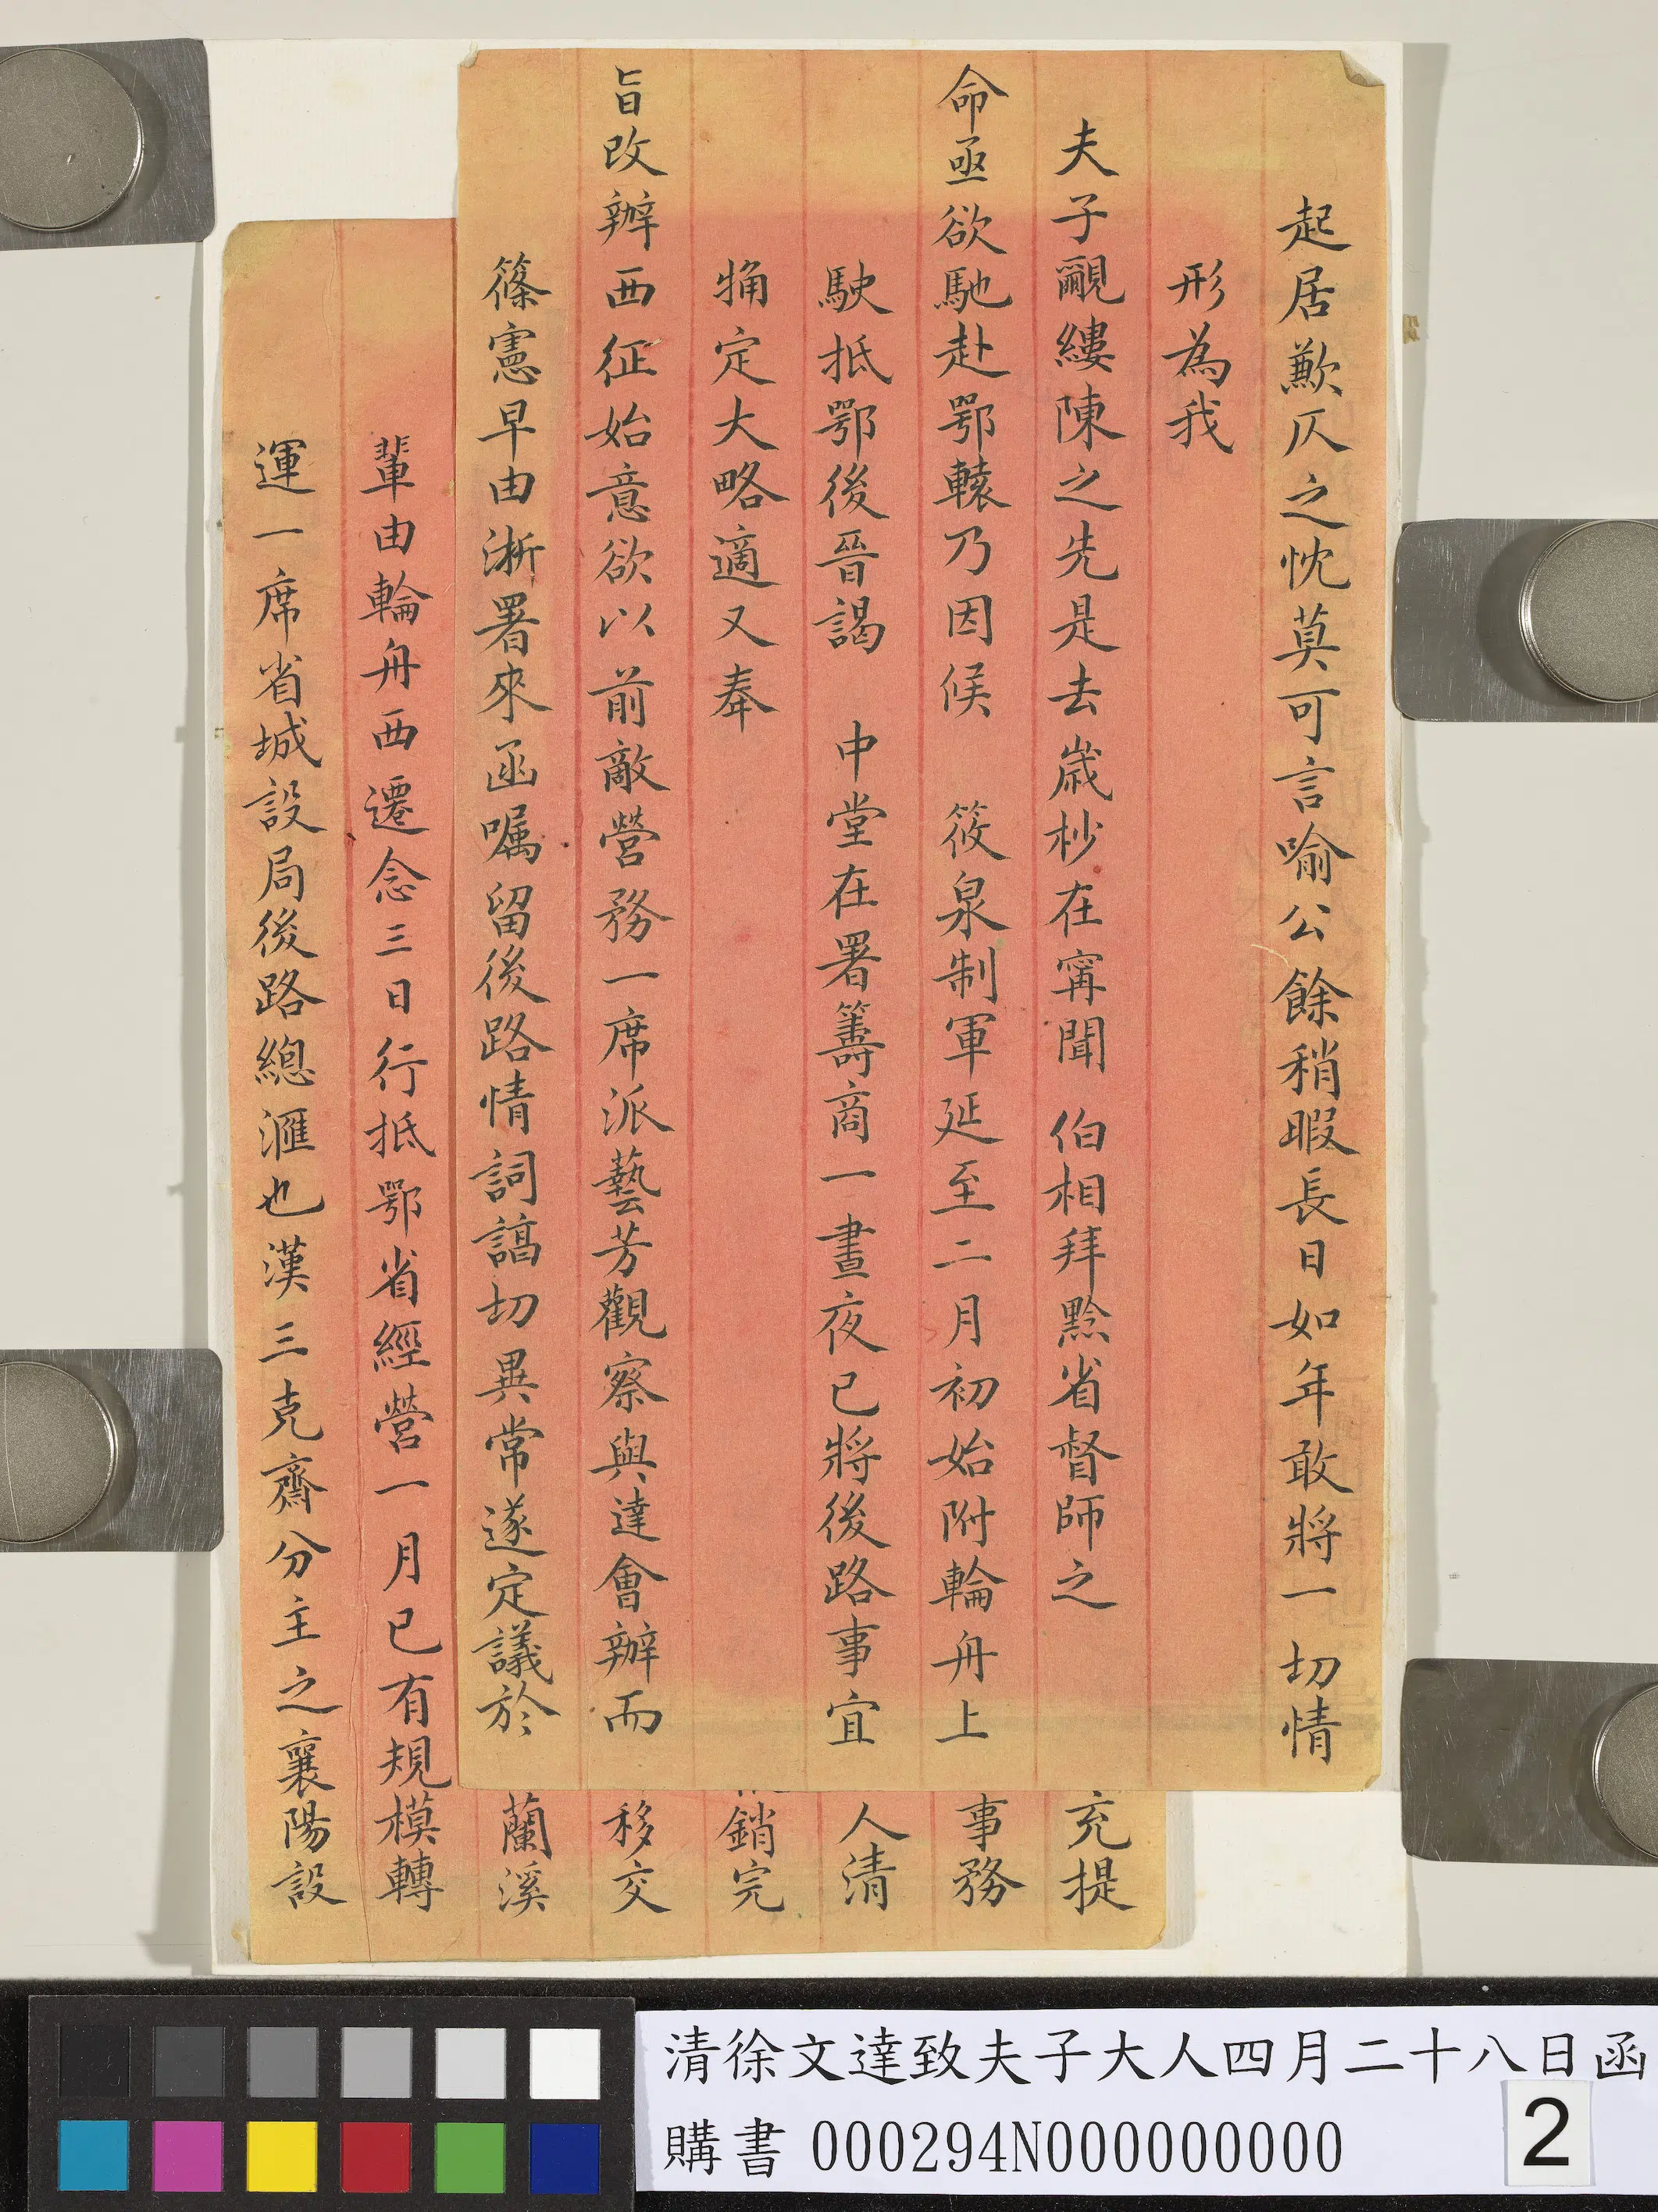 起居歉仄之忱莫可言喻公餘稍暇長日如年敢將一切情
形為我
夫子覼縷陳之先是去歲杪在甯聞 伯相拜黔省督師之
命亟欲馳赴鄂轅乃因候 筱泉制軍延至二月初始附輪舟上
駛抵鄂後晉謁 中堂在署籌商一晝夜已將後路事宜
定大略適又奉
旨改辦西征始意欲以前敵營務一席派藝芳觀察與達會辦而
篠憲早由浙署來函囑留後路情詞諄切異常遂定議於
充提
事務
人清
銷完
移交
蘭溪
輩由輪舟西遷念三日行抵鄂省經營一月已有規模轉
運一席省城設局後路總滙也漢三克齋分主之襄陽設
清徐文達致夫子大人四月二十八日函
購書 000294N000000000
2